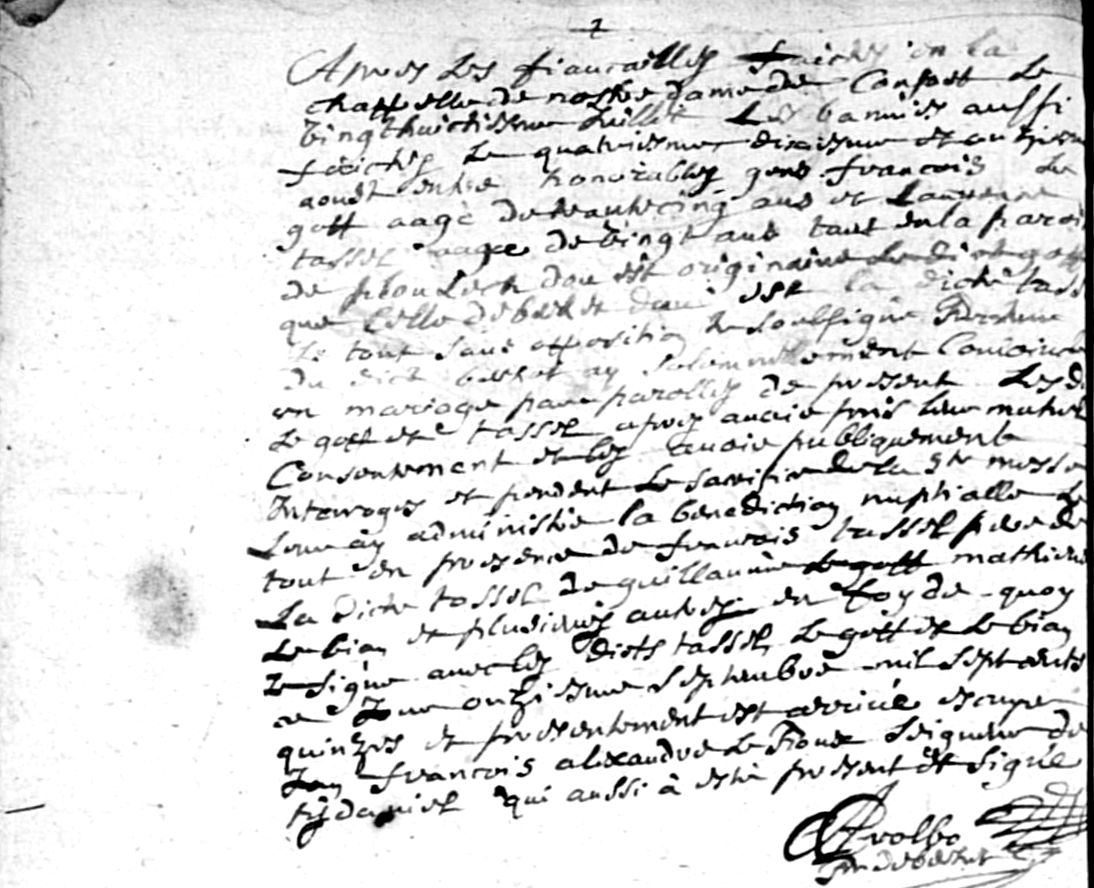 Apres les fiancailles faictes en la
chappelle de nostre dame de Confort Le
vingthuictiesme Juillet Les bannies aussi
faictes le quatriesme dixiesme et onziesme
aoust entre honorables gens francois Le
goff aagé de trante cinq ans et
tassel aagee de vingt ans tant en la paroi
de ploulech dou est originaire Le dict goff
que celle de berhet dou est la dicte tass
Le tout sans opposition Je soubsigné
du dict berhet ay solemnellement
en mariage par parolles de present Les d
Le goff et tassel apres avoir pris leur mutuel
Consentement et les avoir publiquement
Interroges et pendent Le sacrifice de la ste messe
Leur ay administré la benediction nuptialle Le
tout en presence de francois tassel pere de
La dicte tassel de guillaume le goff mathieu
Le bian et plusieurs autres en foy de quoy
Je signe avec les dicts tassel Le goff et Le bian
ce Jour onziesme septembre mil sept cents
quinzes et presentement est arrivé escuyer
Jan francois alexandre Le Roux seigneur de
kjdaniel qui aussi à esté present et signe
de berhet